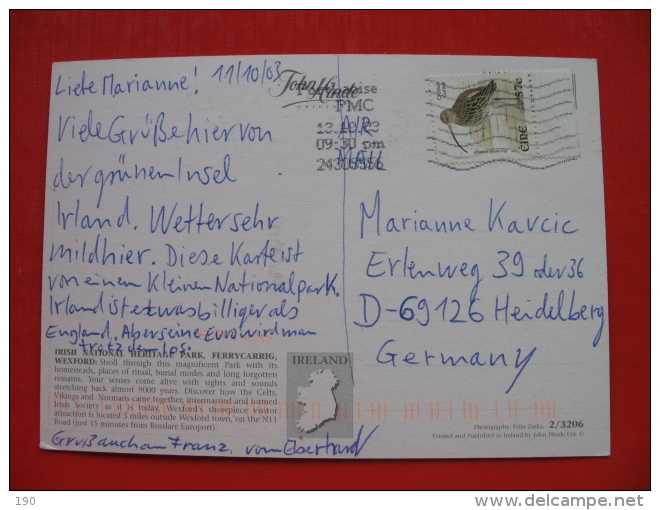 Liebe Marianne! 11/10/03
Viele Grüße hier von
der grünen Insel
Irland. Wetter sehr
mild hier. Diese Karte ist
von einem kleinen Nationalpark.
Irland ist etwas billiger als
England. Aber seine Euro wird man
trotzdem los.
IRISH NATIONAL HERITAGE PARK, FERRYCARRIG,
WEXFORD: Stroll through this magnificent Park with its
homesteads, places of ritual, burial modes and long forgotten
remains. Your senses come alive with sights and sounds
stretching back almost 9000 years. Discover how the Celts,
Vikings and Normans came together, intermarried and formed
Irish Society as it is today. Wexford's showpiece visitor
attraction is located 3 miles outside Wexford town, on the N11
Road (just 15 minutes from Rosslare Europort).
Gruß auch an Franz. vom Eberhard
IRELAND
John Hinde
ORIGINAL
PMC
09:30 pm
AIR
MAIL
ÉIRE 57c
Marianne Kavcic
Erlenweg 39 oder 36
D-69126 Heidelberg
Germany
Photography: Felix Zaska. 2/3206
Printed and Published in Ireland by John Hinde Ltd. ©
190
http://www.delcampe.net